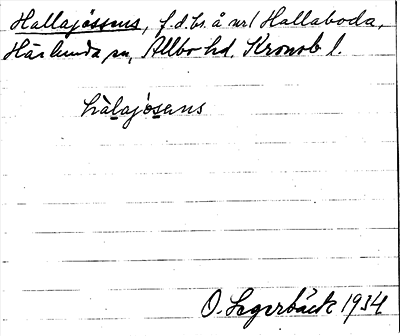 Hallajössens, f.d. bs. å nr 1 Hallaboda,
Härlunda sn, Allbo hd, Kronob. l.
hàlajösens
O. Lagerbäck 1934